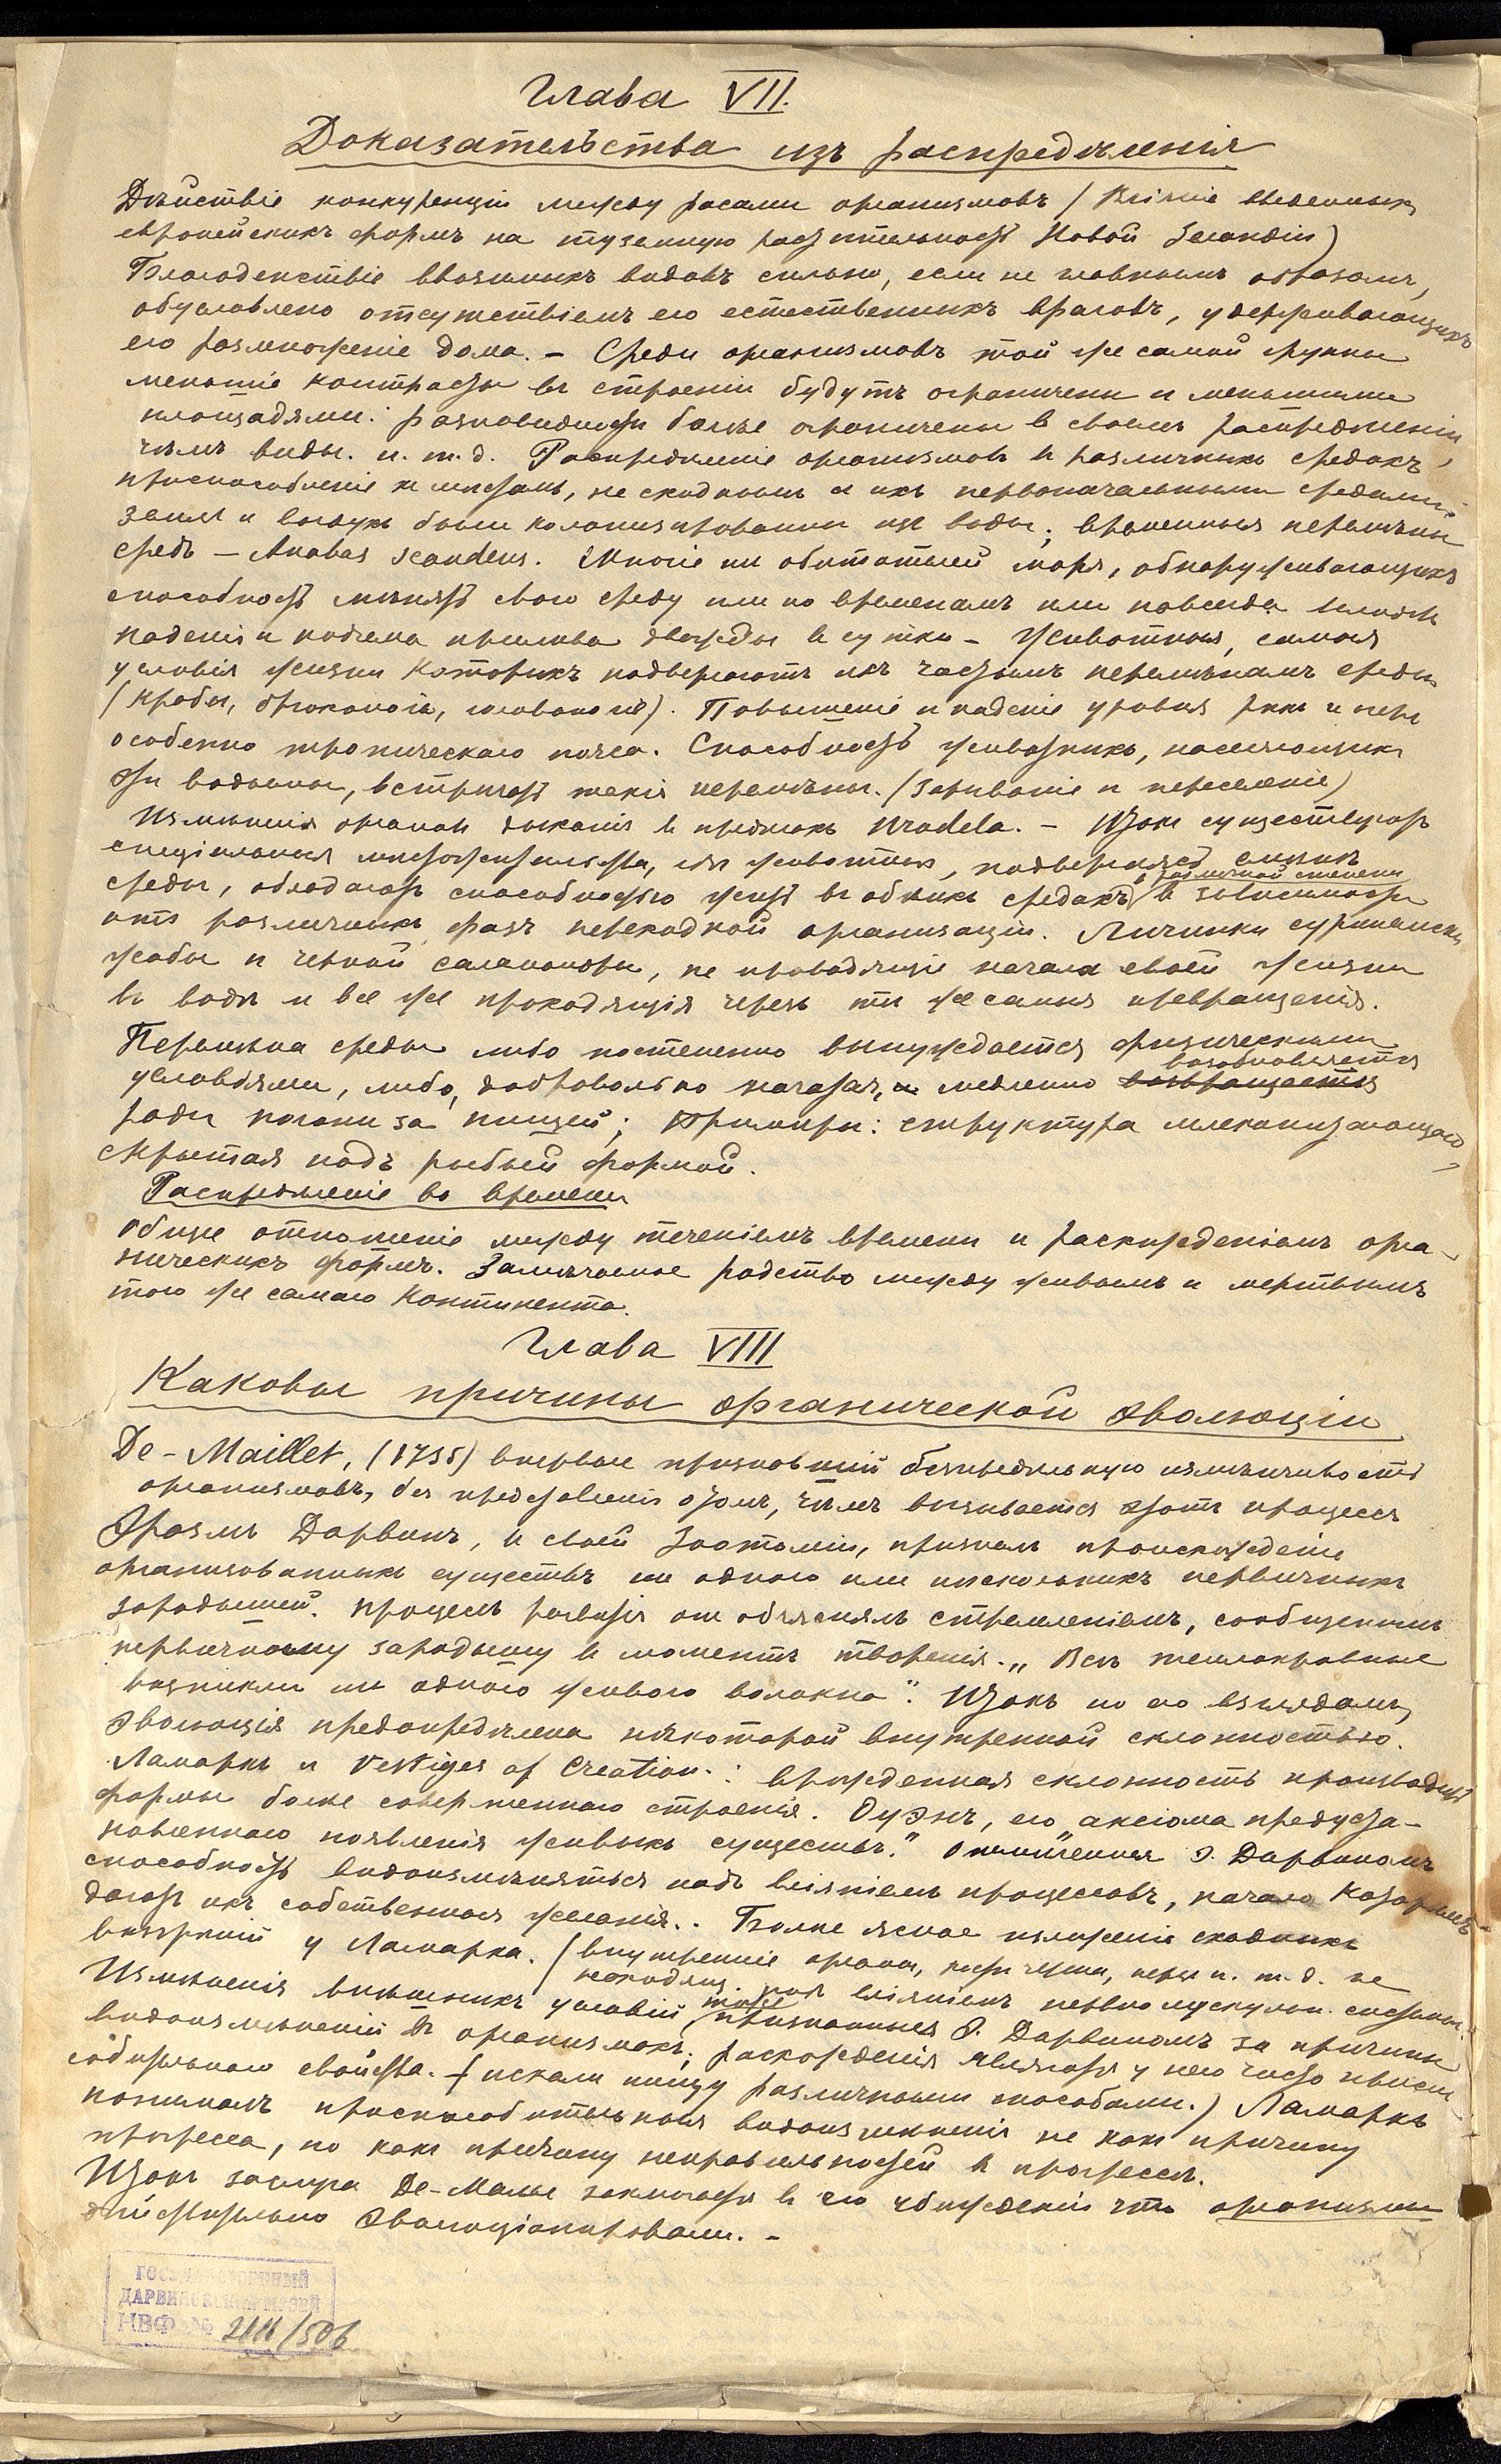 Глава VII.
Доказательства изъ распредѣленія
Дѣйствіе конкуренціи между расами организмовъ (Вліяніе введенныхъ
европейскихъ формъ на туземную растительность Новой Зеландіи)
Благоденствіе ввозимыхъ видовъ сильно, если не главнымъ образомъ,
обусловлено отсутствіемъ его естественныхъ враговъ, удерживающихъ
его размноженіе дома. – Среди организмовъ той же самой группы
меньшіе контрасты въ строеніи будутъ ограничены и меньшими
площадями: разновидности болѣе ограничены в своемъ распредѣленіи,
чѣмъ виды. и. т. д. Распредѣленіе организмовъ въ различныхъ средахъ,
приспособленіе къ мѣстамъ, не сходнымъ съ ихъ первоначальными средами:
земля и воздухъ были колонизированы изъ воды; временныя перемѣны
средъ – Anabas scandens. Многіе изъ обитателей моря, обнаруживающихъ
способность мѣнять свою среду или по временамъ или навсегда
паденія и подъема прилива дважды въ сутки – Животныя, самыя
условія жизни которыхъ подвергаютъ ихъ частымъ перемѣнамъ среды
(крабы, брюхоногія, головоногія). Повышеніе и паденіе уровня рѣкъ и озеръ
особенно тропическаго пояса. Способность животныхъ, населяющихъ
эти водоемы, встрѣчать такія перемѣны. (зарываніе и переселеніе)
Измѣненія органовъ дыханія въ предѣлахъ Urodela. – Итакъ существуютъ
спеціальныя мѣстожительства, гдѣ животныя, подвергаясь смѣнѣ
въ различной степени
среды, обладаютъ способностью жить въ обѣихъ средахъ в зависимости
отъ различныхъ фазъ переходной организаціи. Личинки суринамской
жабы и черной саламандры, не проводящіе начала своей жизни
въ водѣ и все же проходящія черезъ тѣ же самыя превращенія.
Перемѣна среды либо постепенно вынуждается физическими
возобновляется
условіями, либо, добровольно начатая, медленно возвращается
ради погони за пищей; Примѣры: структура млекопитающаго
скрытая подъ рыбьей формой.
Распредѣленіе во времени
Общее отношеніе между теченіемъ времени и распредѣленіемъ орга-
ническихъ формъ. Замѣчаемое родство между живымъ и мертвымъ
того же самаго континента.
Глава VIII
Каковы причины органической эволюціи
De-Maillet, (1735) впервые признавшій безпредѣльную измѣнчивость
организмовъ, безъ представленія о томъ, чѣмъ вызывается этотъ процессъ
Эразмъ Дарвинъ, въ своей Зоономіи, признаетъ происхожденіе
организованныхъ существъ изъ одного или нѣсколькихъ первичныхъ
зародышей. Процессъ развитія онъ объяснялъ стремленіемъ, сообщеннымъ
первичному зародышу въ моментъ творенія. „Всѣ теплокровные
возникли изъ одного живого волокна“. Итакъ по его взглядамъ,
эволюція предопредѣлена нѣкоторой внутренней склонностью.
Ламаркъ и Vestiges of Creation: врожденная склонность производить
формы более совершеннаго строенія. Оуэнъ, его „аксіома предуста-
новленнаго появленія живыхъ существъ.“ Э. Дарвиномъ
способность видоизмѣняться подъ вліяніемъ процессовъ, начало которымъ
даютъ ихъ собственныя желанія. Болѣе ясное изложеніе сходныхъ
воззрѣній у Ламарка. (внутренніе органы, и. т. д. не
находящ. под вліяніемъ нервно мускульн. системы.
Измѣненія внѣшнихъ условій тоже признанныя Э. Дарвиномъ за причины
видоизмѣненій въ организмахъ; расхожденія являются у него часто приспо-
собительнаго свойства. (искали пищу различными способами.) Ламаркъ
понималъ приспособительныя видоизмѣненія не какъ причину
прогресса, но какъ причину неправильностей въ прогрессѣ.
Итакъ заслуга Де-Малье заключается в его убѣжденіи что организмы
дѣйствительно эволюціонировали. –
ГОСУДАРСТВЕННЫЙ
ДАРВИНОВСКИЙ МУЗЕЙ
НВФ №